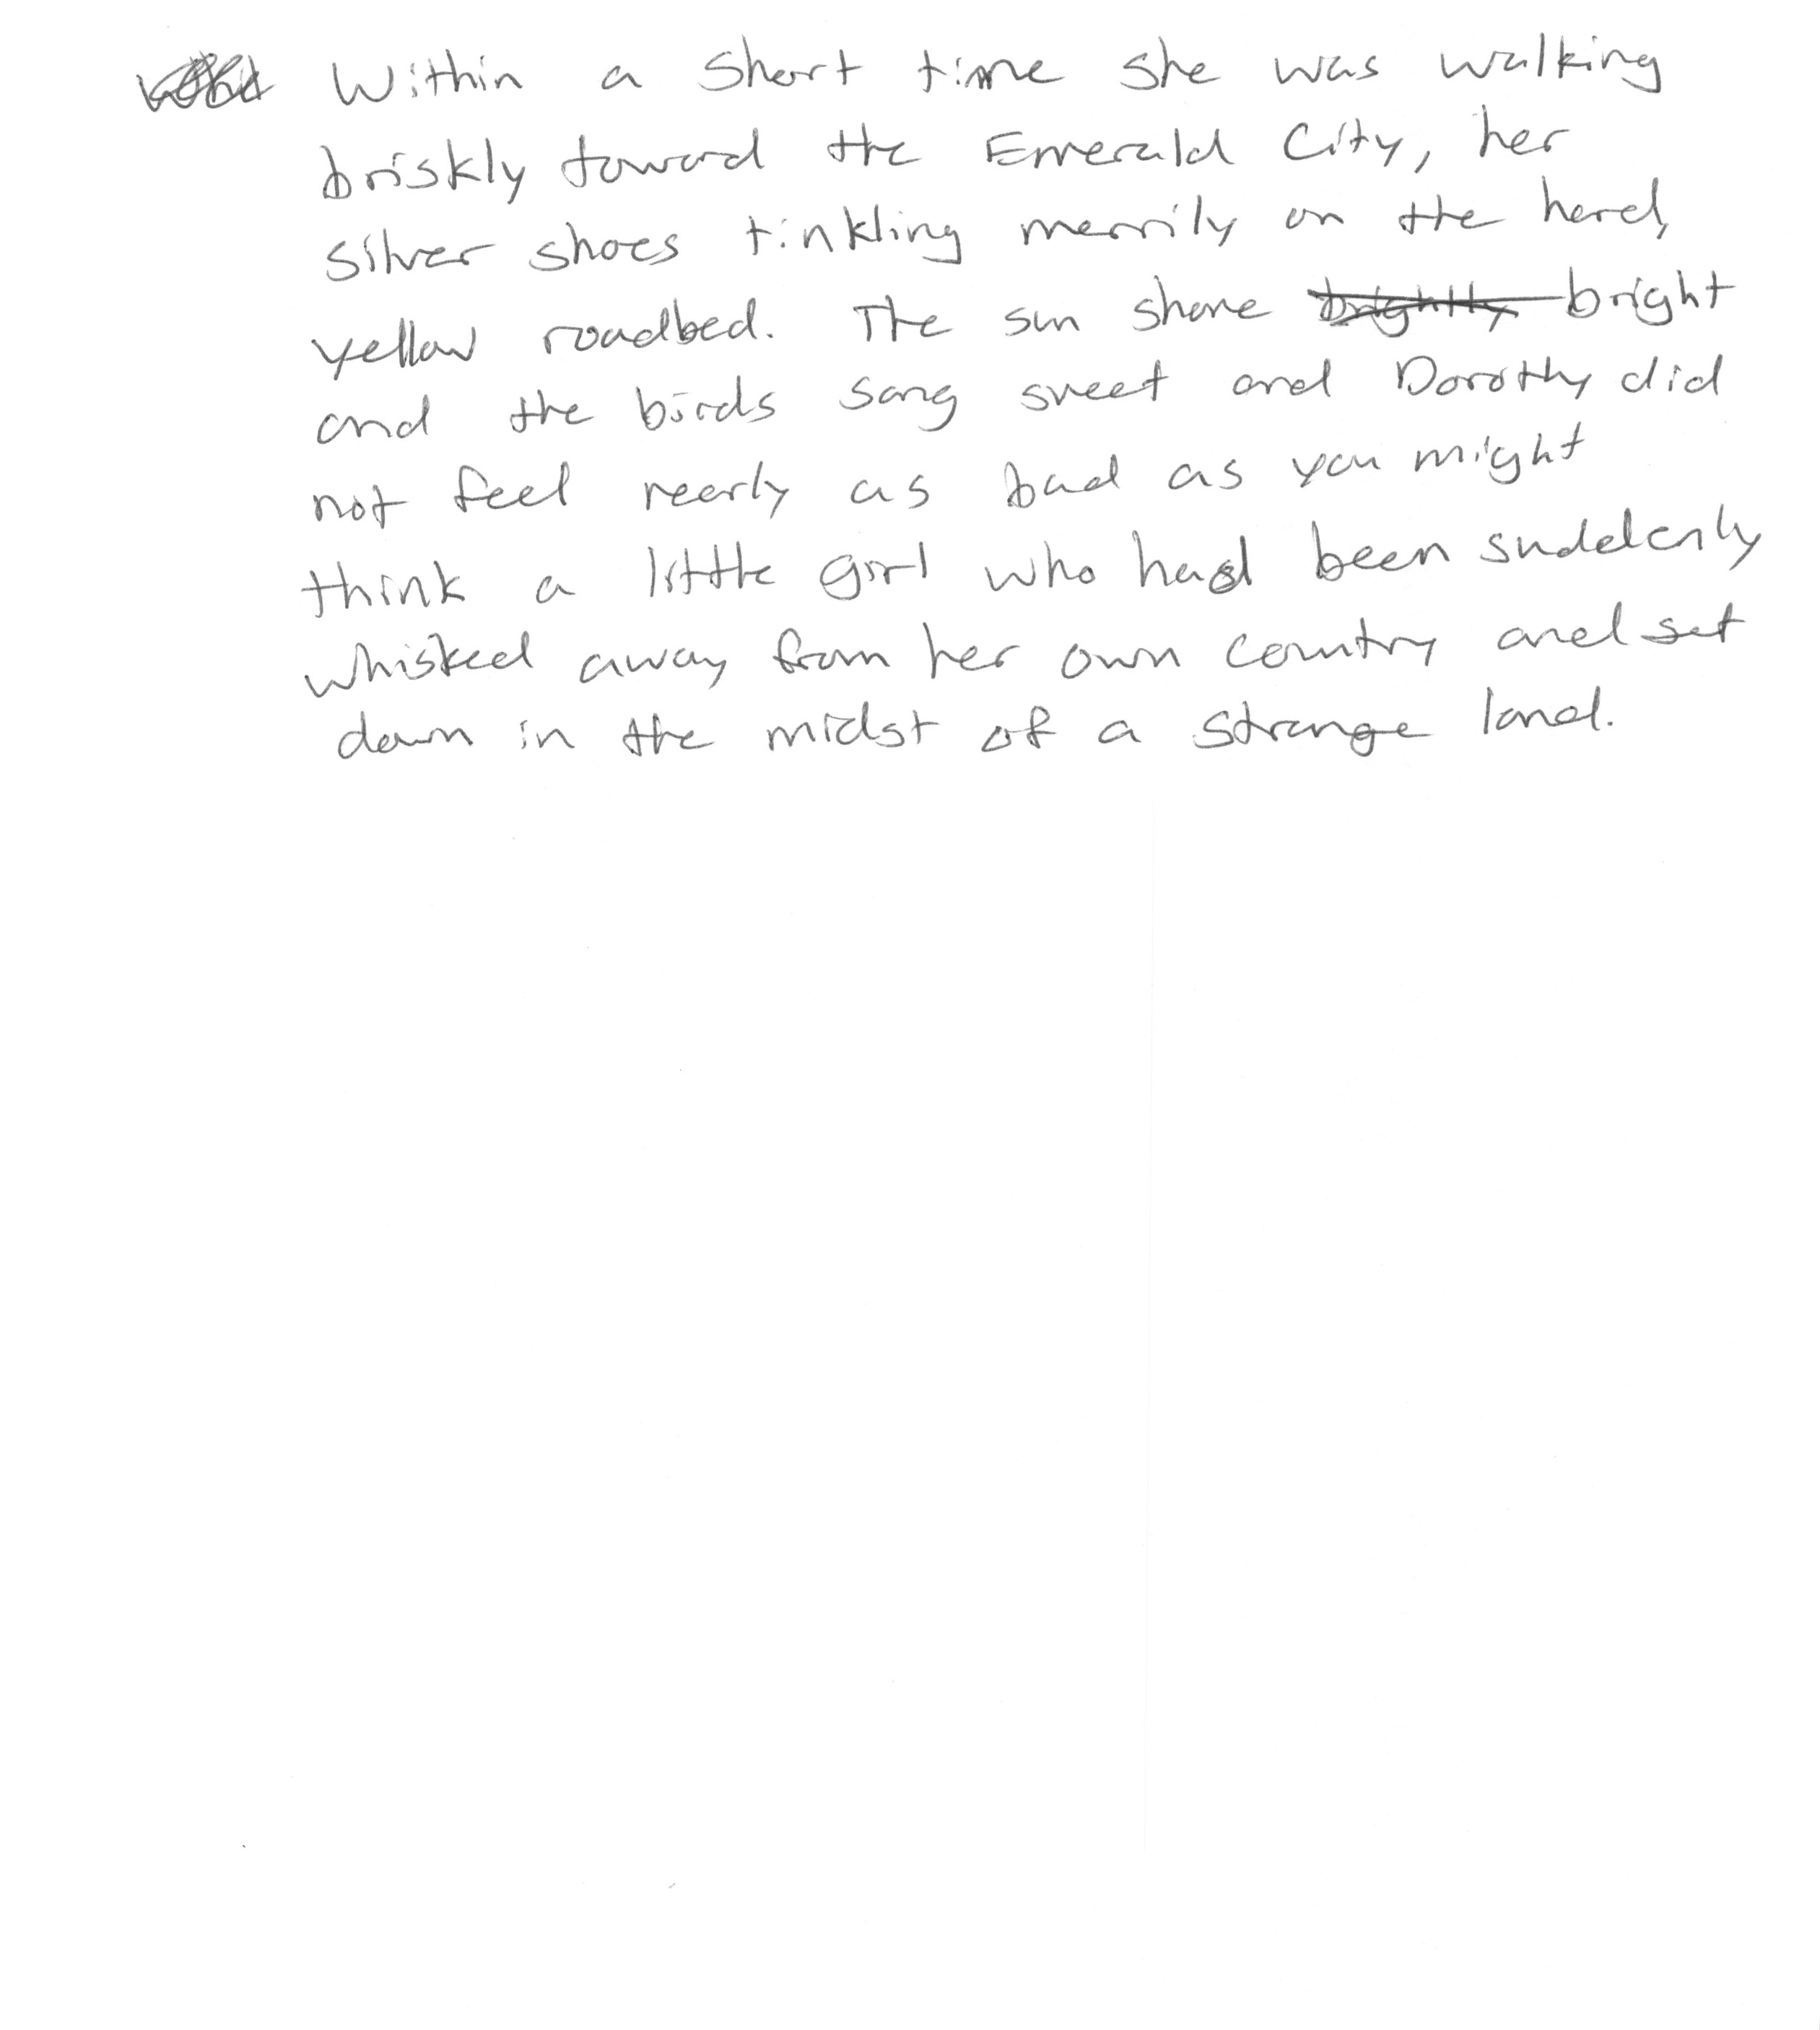 Within a short time she was walking
briskly toward the Emerald City, her
silver shoes tinkling merrily on the hard,
yellow roadbed. The sun shone brightly bright
and the birds sang sweet and Dorothy did
not feel nearly as bad as you might
think a little girl who had been suddenly
whisked away from her own country and set
down in the midst of a strange land.